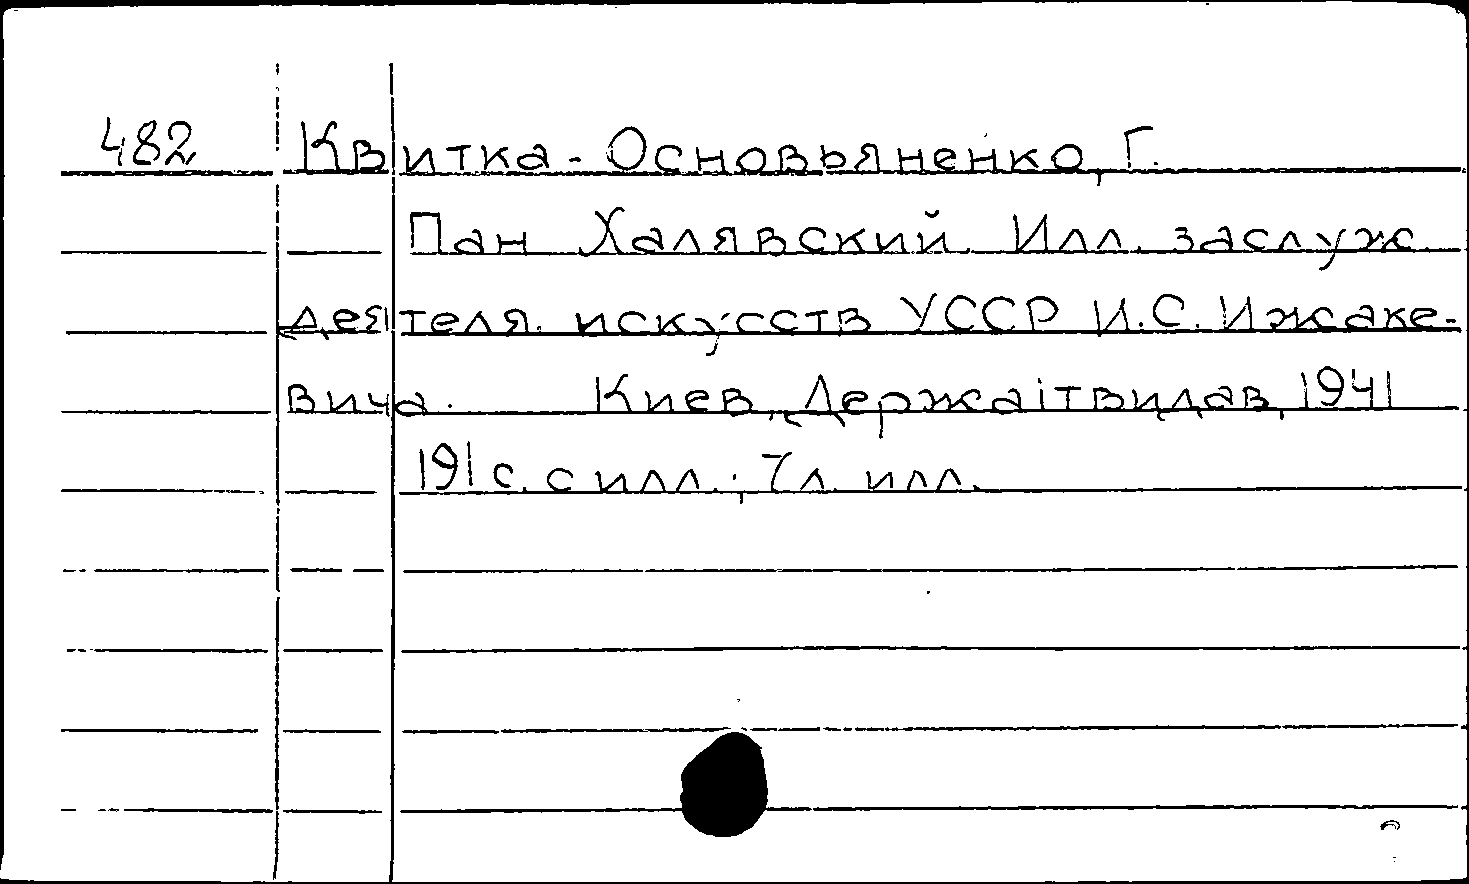 482 Квитка-Основьяненко, Г.
Пан Халявский. Илл. заслуж.
деятеля искусств УССР И.С. Ижаке-
вича. Киев, Держаітвидав, 1941
191 с. с илл.; 7 л. илл.